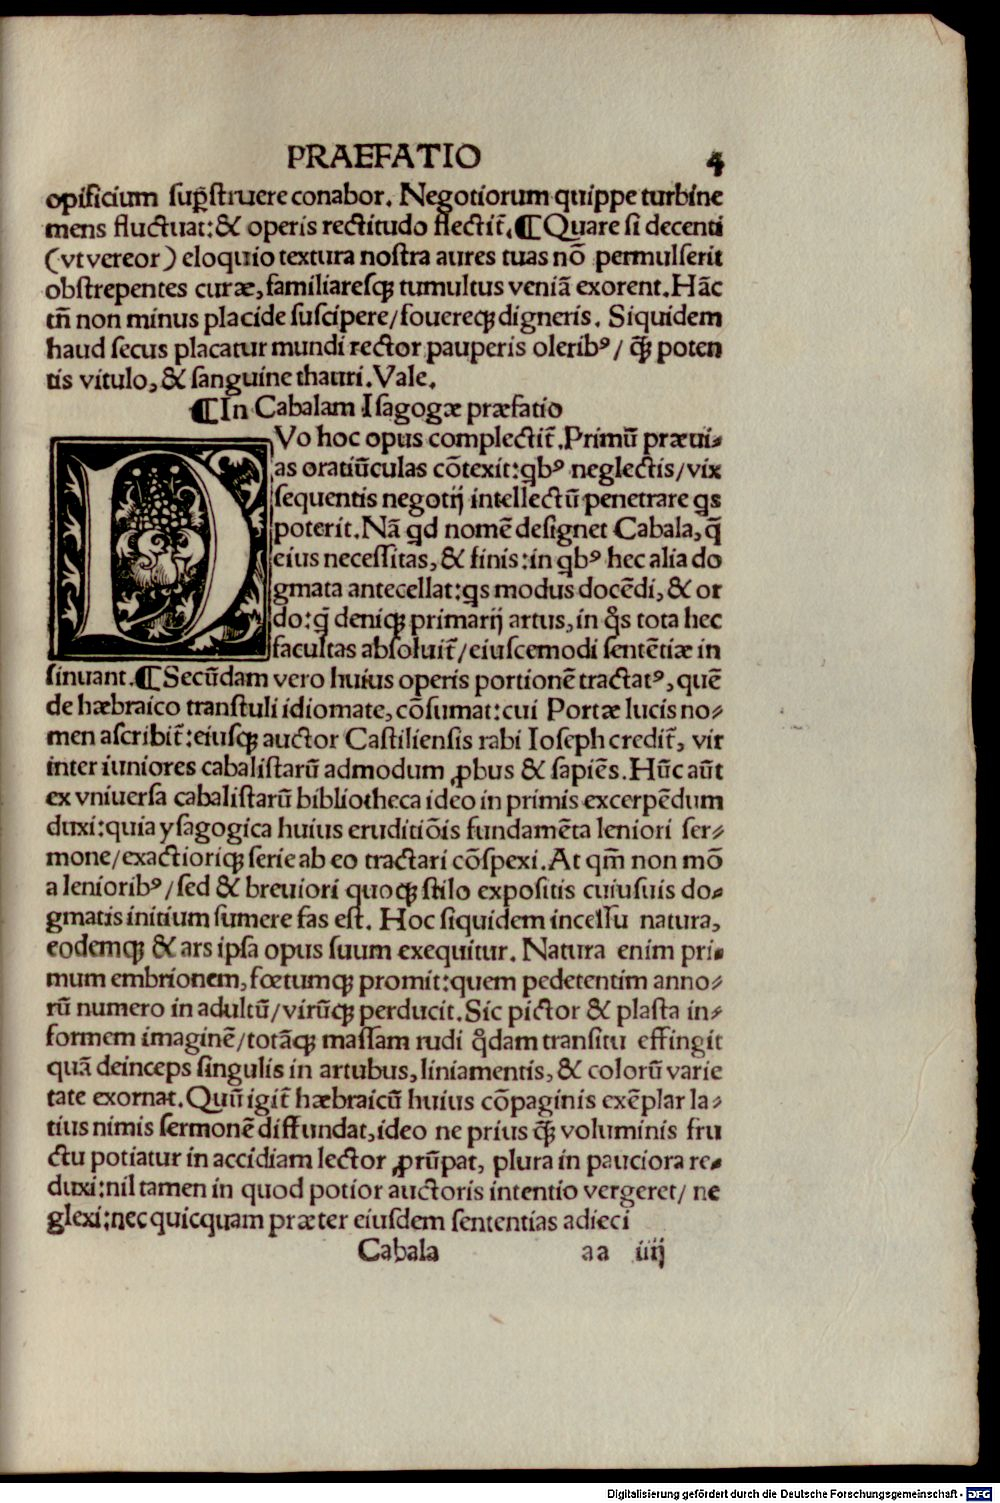 PRAEFATIO 4
opificium sup̱struere conabor. Negotiorum quippe turbine
mens fluctuat:& operis rectitudo flectit̃.¶Quare si decenti
(vt vereor) eloquio textura nostra aures tuas nõ permulserit
obstrepentes curæ,familiaresqꝫ tumultus veniã exorent.Hãc
tñ non minus placide suscipere/fouereqꝫ digneris. Siquidem
haud secus placatur mundi rector pauperis olerib⁹/ q̃ꝫ poten
tis vitulo,& sanguine thauri.Vale.
¶In Cabalam Isagogæ præfatio
DVo hoc opus complectit̃.Primũ præui⸗
as oratiũculas cõtexit:qb⁹ neglectis/vix
sequentis negotij intellectũ penetrare qs
poterit.Nã qd nomẽ designet Cabala,q̃
eius necessitas,& finis:in qb⁹ hec alia do
gmata antecellat:qs modus docẽdi,& or
do:q̃ deniqꝫ primarij artus,in q̊s tota hec
facultas absoluit̃/eiuscemodi sentẽtiæ in
sinuant.¶Secũdam vero huius operis portionẽ tractat⁹,quẽ
de hæbraico transtuli idiomate,cõsumat:cui Portæ lucis no⸗
men ascribit̃:eiusqꝫ auctor Castiliensis rabi Ioseph credit̃, vir
inter iuniores cabalistarũ admodum ꝓbus & sapiẽs.Hũc aũt
ex vniuersa cabalistarũ bibliotheca ideo in primis excerpẽdum
duxi:quia ysagogica huius eruditiõis fundamẽta leniori ser⸗
mone/exactioriqꝫ serie ab eo tractari cõspexi.At qm̃ non mõ
a leniorib⁹/sed & breuiori quoqꝫ stilo expositis cuiusuis do⸗
gmatis initium sumere fas est. Hoc siquidem incessu natura,
eodemqꝫ & ars ipsa opus suum exequitur. Natura enim pri⸗
mum embrionem,fœtumqꝫ promit:quem pedetentim anno⸗
rũ numero in adultũ/virũqꝫ perducit.Sic pictor & plasta in⸗
formem imaginẽ/totãqꝫ massam rudi q̊dam transitu effingit
quã deinceps singulis in artubus,liniamentis,& colorũ varie
tate exornat.Quũ igit̃ hæbraicũ huius cõpaginis exẽplar la⸗
tius nimis sermonẽ diffundat,ideo ne prius q̃ꝫ voluminis fru
ctu potiatur in accidiam lector ꝓrũpat, plura in pauciora re⸗
duxi:nil tamen in quod potior auctoris intentio vergeret/ ne
glexi:nec quicquam præter eiusdem sententias adieci
Cabala aa iiij
Digitalisierung gefördert durch die Deutsche Forschungsgemeinschaft - DFG